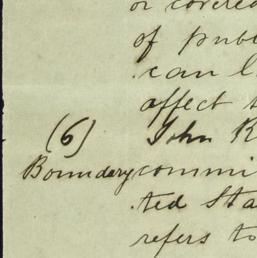 or covered
of publ
can l
affect t
(6) John R
Boundary commi
ted Sta
refers to